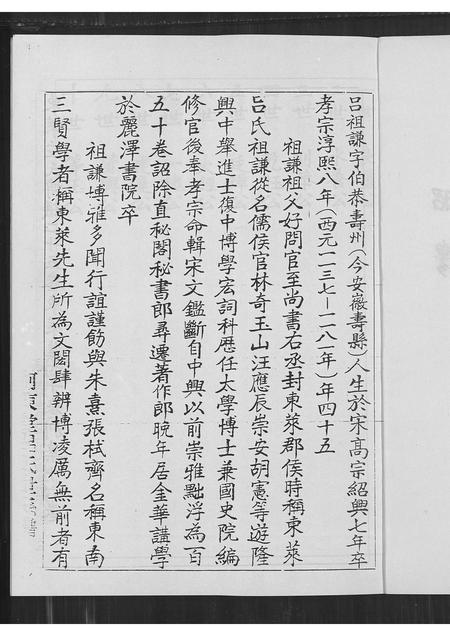 呂祖謙字伯恭壽州(今安徽壽縣)人生於宋高宗紹興七年卒
孝宗淳熙八年(西元一一三七-一一八一年)年四十五
祖謙祖父好問官至尚書右丞封東萊郡侯時稱東萊
呂氏祖謙從名儒侯官林奇玉山汪應辰崇安胡憲等遊隆
興中舉進士復中博學宏詞科歷任太學博士兼國史院編
修官後奉孝宗命輯宋文鑑斷自中興以前崇雅黜浮為百
五十卷詔除直秘閣秘書郎尋遷著作郎晚年居金華講學
於麗澤書院卒
祖謙博雅多聞行誼謹飭與朱熹張栻齊名稱東南
三賢學者稱東萊先生所為文閎肆辨博凌厲無前者有